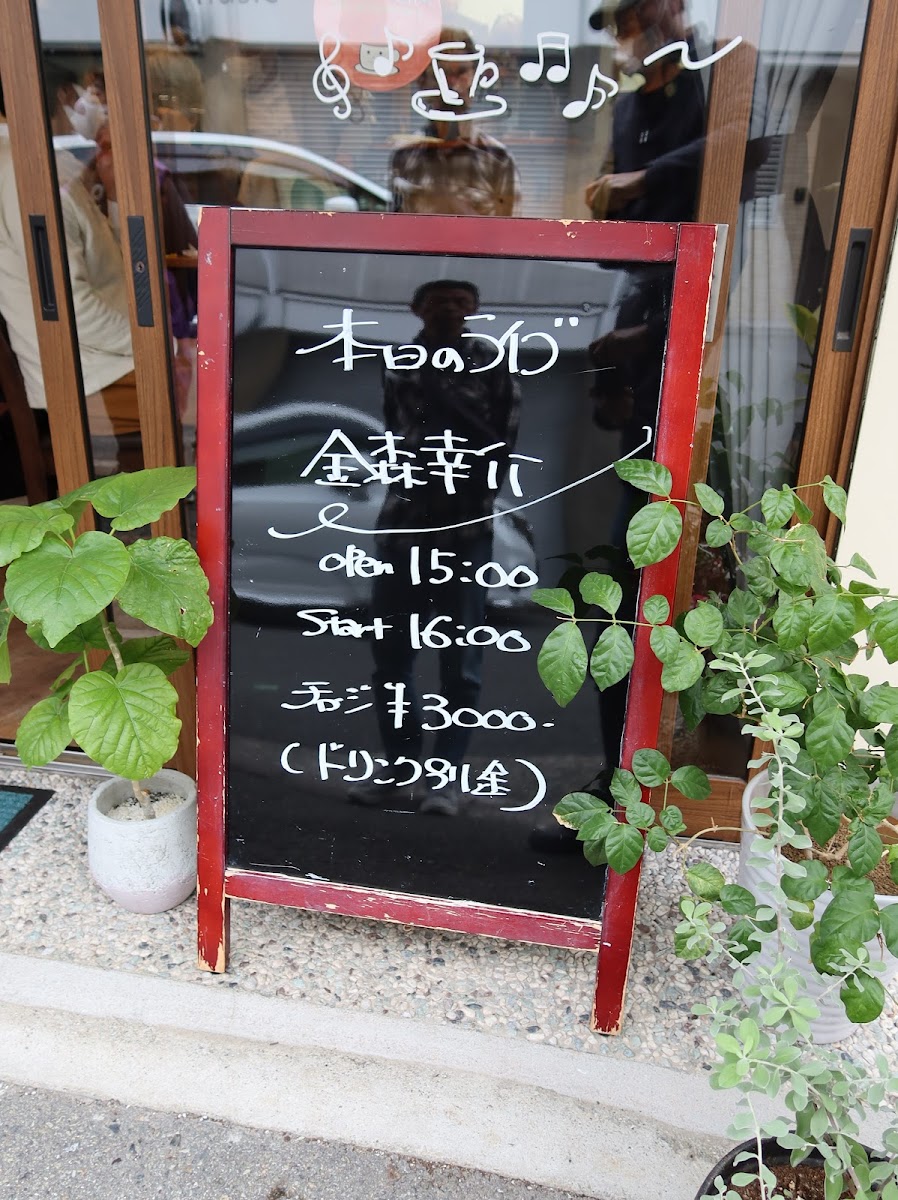 本日のライブ
金森幸介
open 15:00
Start 16:00
チャージ ¥3000-
(ドリンク別金)